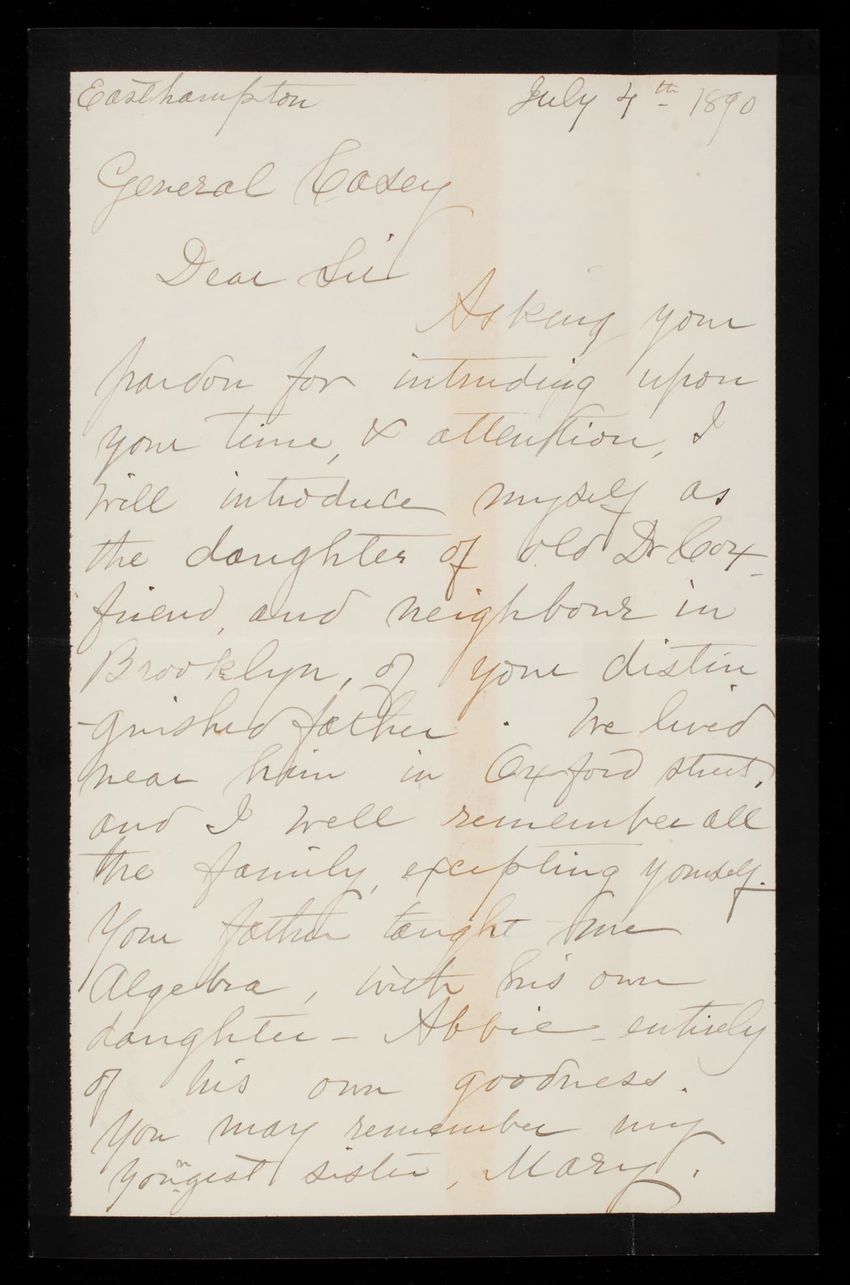 Easthampton July 4th- 1890
General Casey
Dear Sir
Asking your
pardon for intruding upon
your time, & attention, I
will introduce myself as
the daughter of old Dr Cox-
friend, and neighbour in
Brooklyn, of your distin
-guished father. We lived
near him in Oxford street,
and I well remember all
the family, excepting yourself.
Your father taught me
Algebra, with his own
daughter - Abbie - entirely
of his own goodness.
You may remember my
youngest sister, Mary.